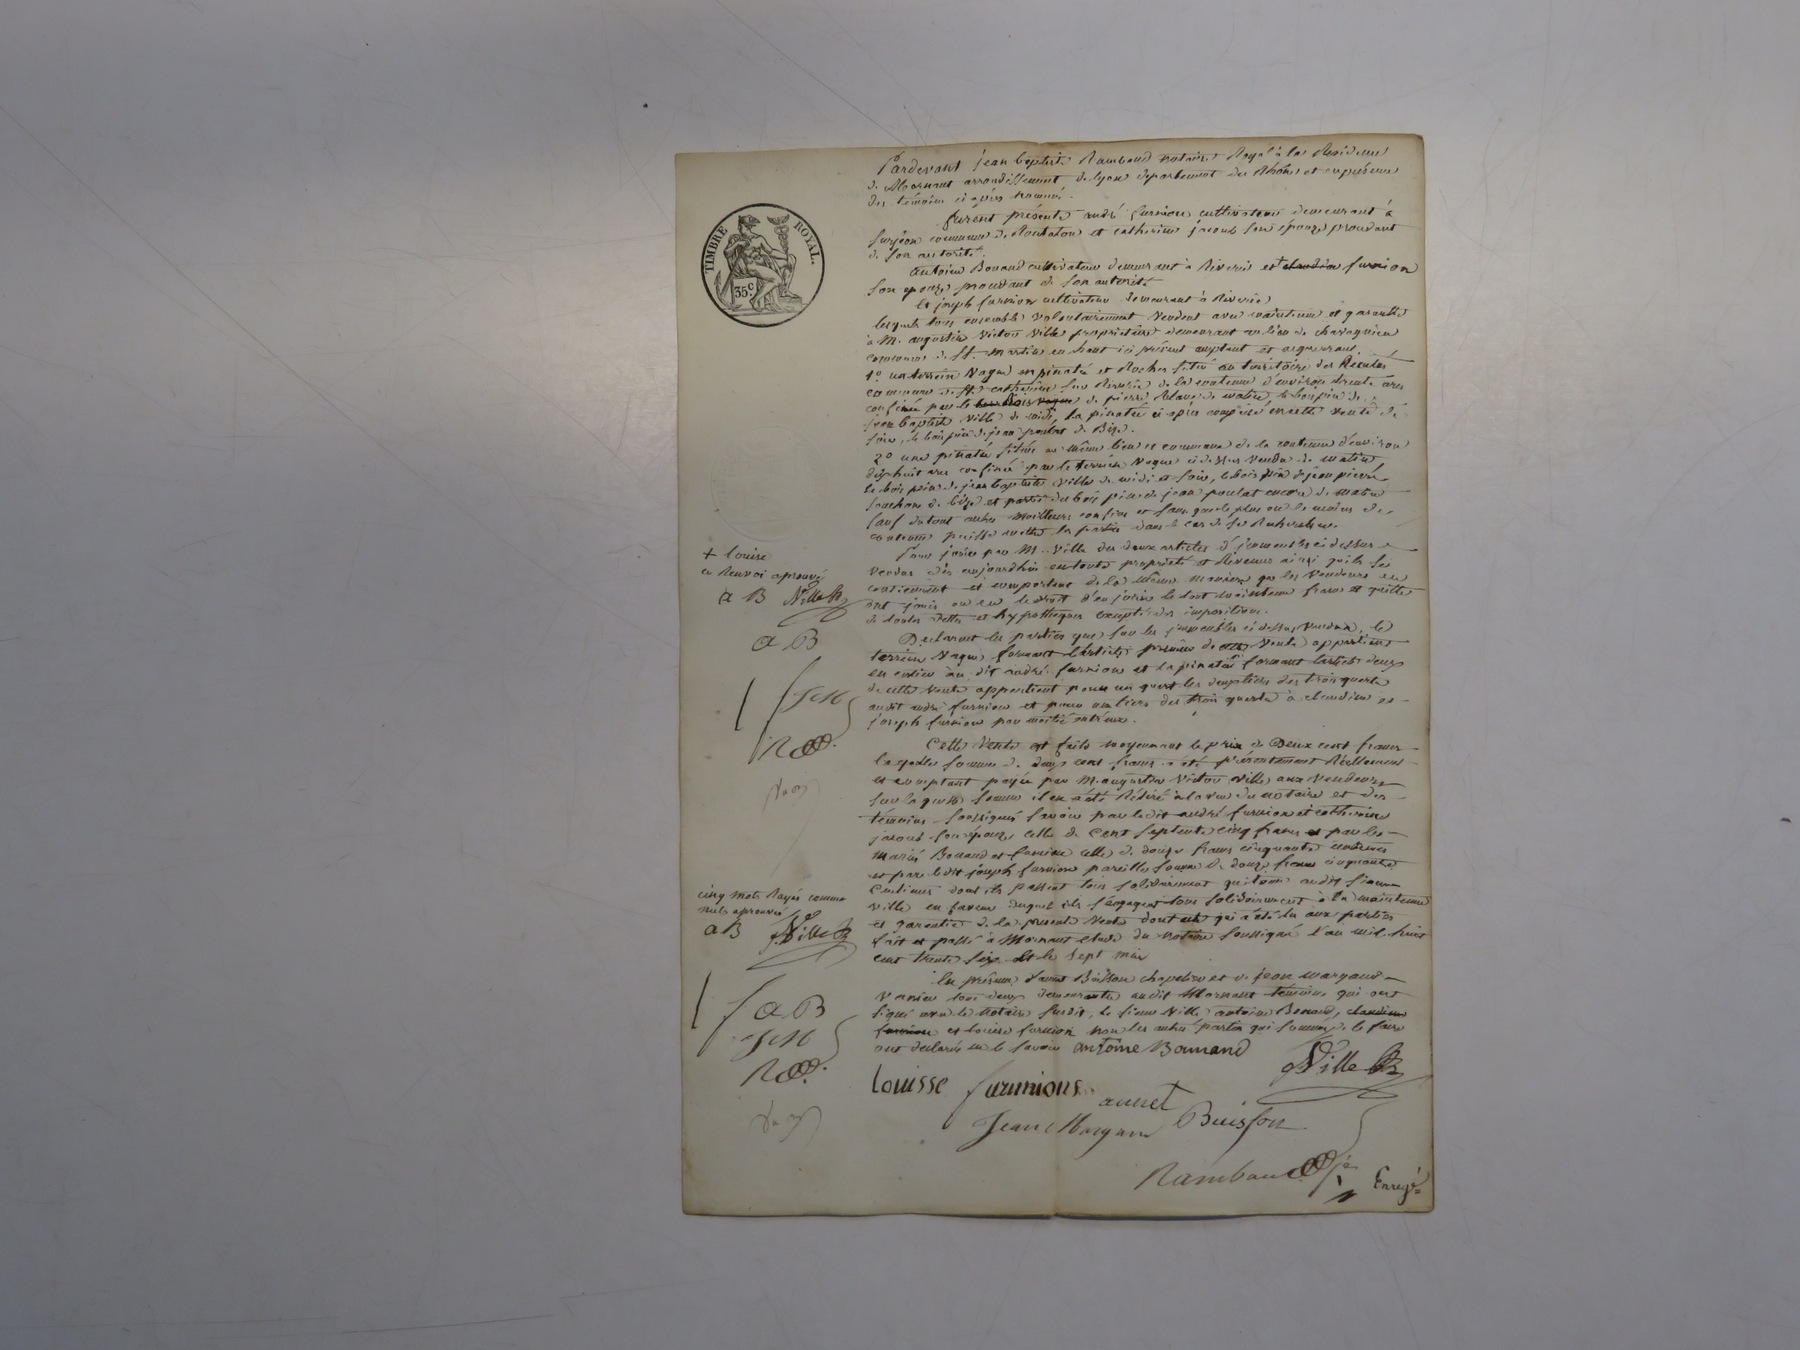 TIMBRE ROYAL.
35c
Pardevant jean baptiste Rambaud notaire Royal à la Résidence
de Mornant arrondissement de lyon departement du Rhône et en présence
des témoins ci après nommés.
furent présents andré furnion cultivateur demeurant à
commune de Rontalon et catherine jacoud son épouze procédant
de son autorité.
antoine Bonand cultivateur demeurant à Riverie et + claudine furnion
son epouze procédant de son autorité
Et joseph furnion cultivateur demeurant à Riverie
lesquels tous ensemble volontairement vendent avec maintenue et garantie
à M. augustin Victor Ville propriétaire demeurant au lieu de
commune de St. martin en haut ici présent acceptant et acquerant
1° un terrein Vague en pinatée et Rocher situé au territoire des
commune de Ste catherine sur Riverie de la contenue d'environ trente ares
confiné par le de pierre de matin, le bois pin de
jean baptiste Ville de midi, la pinatée ci après comprise en cette vente de
soir, le bois pin de jean poulat de Bize.
2° une pinatée située au même lieu et commune de la contenue d'environ
dixhuit ares confinée par le terrein Vague ci dessus vendu de matin
le bois pin de jean baptiste Ville de midi et soir, le bois pin de jean pierre
de bize et partie du bois pin de jean poulat encore de matin
sauf de tout autres meilleurs confins et sans que le plus ou le moins de
contenue puisse mettre les parties dans le cas de se Rechercher.
Pour jouir par M. Ville des deux articles d'immeubles ci dessus
vendus dès aujourdhui en toute propriété et Revenus ainsi qu'ils se
contiennent et comportent de la même manière que les Vendeurs en
ont joui ou eu le droit d'en jouir le tout maintenu franc et quitte
de toutes dettes et hypothèques excepté des impositions.
Déclarent les parties que sur les immeubles ci dessus vendus, le
terrein vague formant l'article premier de cette vente appartient
en entier au dit andré furnion et la pinatée formant l'article deux
de cette vente appartient pour un quart les deux tiers des trois quarts
audit andré furnion et pour un tiers des trois quarts à claudine et
joseph furnion par moitié entreux.
Cette Vente est faite moyennant le prix de Deux cent francs
laquelle somme de deux cent francs a été présentement Réellement
et comptant payée par M. augustin Victor Ville aux Vendeurs
sur laquelle somme il en a été Retiré à la vue du notaire et des
témoins soussignés savoir par le dit andré furnion et catherine
jacoud son épouze celle de cent septante cinq francs et par les
mariés Bonand et furnion celle de douze francs cinquante centimes
et par le dit joseph furnion pareille somme de douze francs cinquante
centimes dont ils passent tous solidairement quittance audit sieur
Ville en faveur duquel ils s'engagent tous solidairement à la maintenue
et garantie de la présente Vente dont acte qui a été lu aux parties
fait et passé à Mornant etude du notaire soussigné l'an mil huit
cent trente six et le sept mai
En présence d'annet Buisson chapelier et de jean margand
tous deux demeurants audit Mornant témoins qui ont
signé avec le notaire susdit, le sieur Ville antoine Bonand, claudine
furnion et louise furnion non les autres parties qui sommés de le faire
ont déclaré ne le savoir antoine Bonnand
Ville
Louisse furnnions
annet Buisson
Jean Margand
Rambaud
Enregé
+ louise
ce Renvoi aprouvé
a B Ville
a B
cinq mots Rayés comme
nuls aprouvés
a B Ville
a B